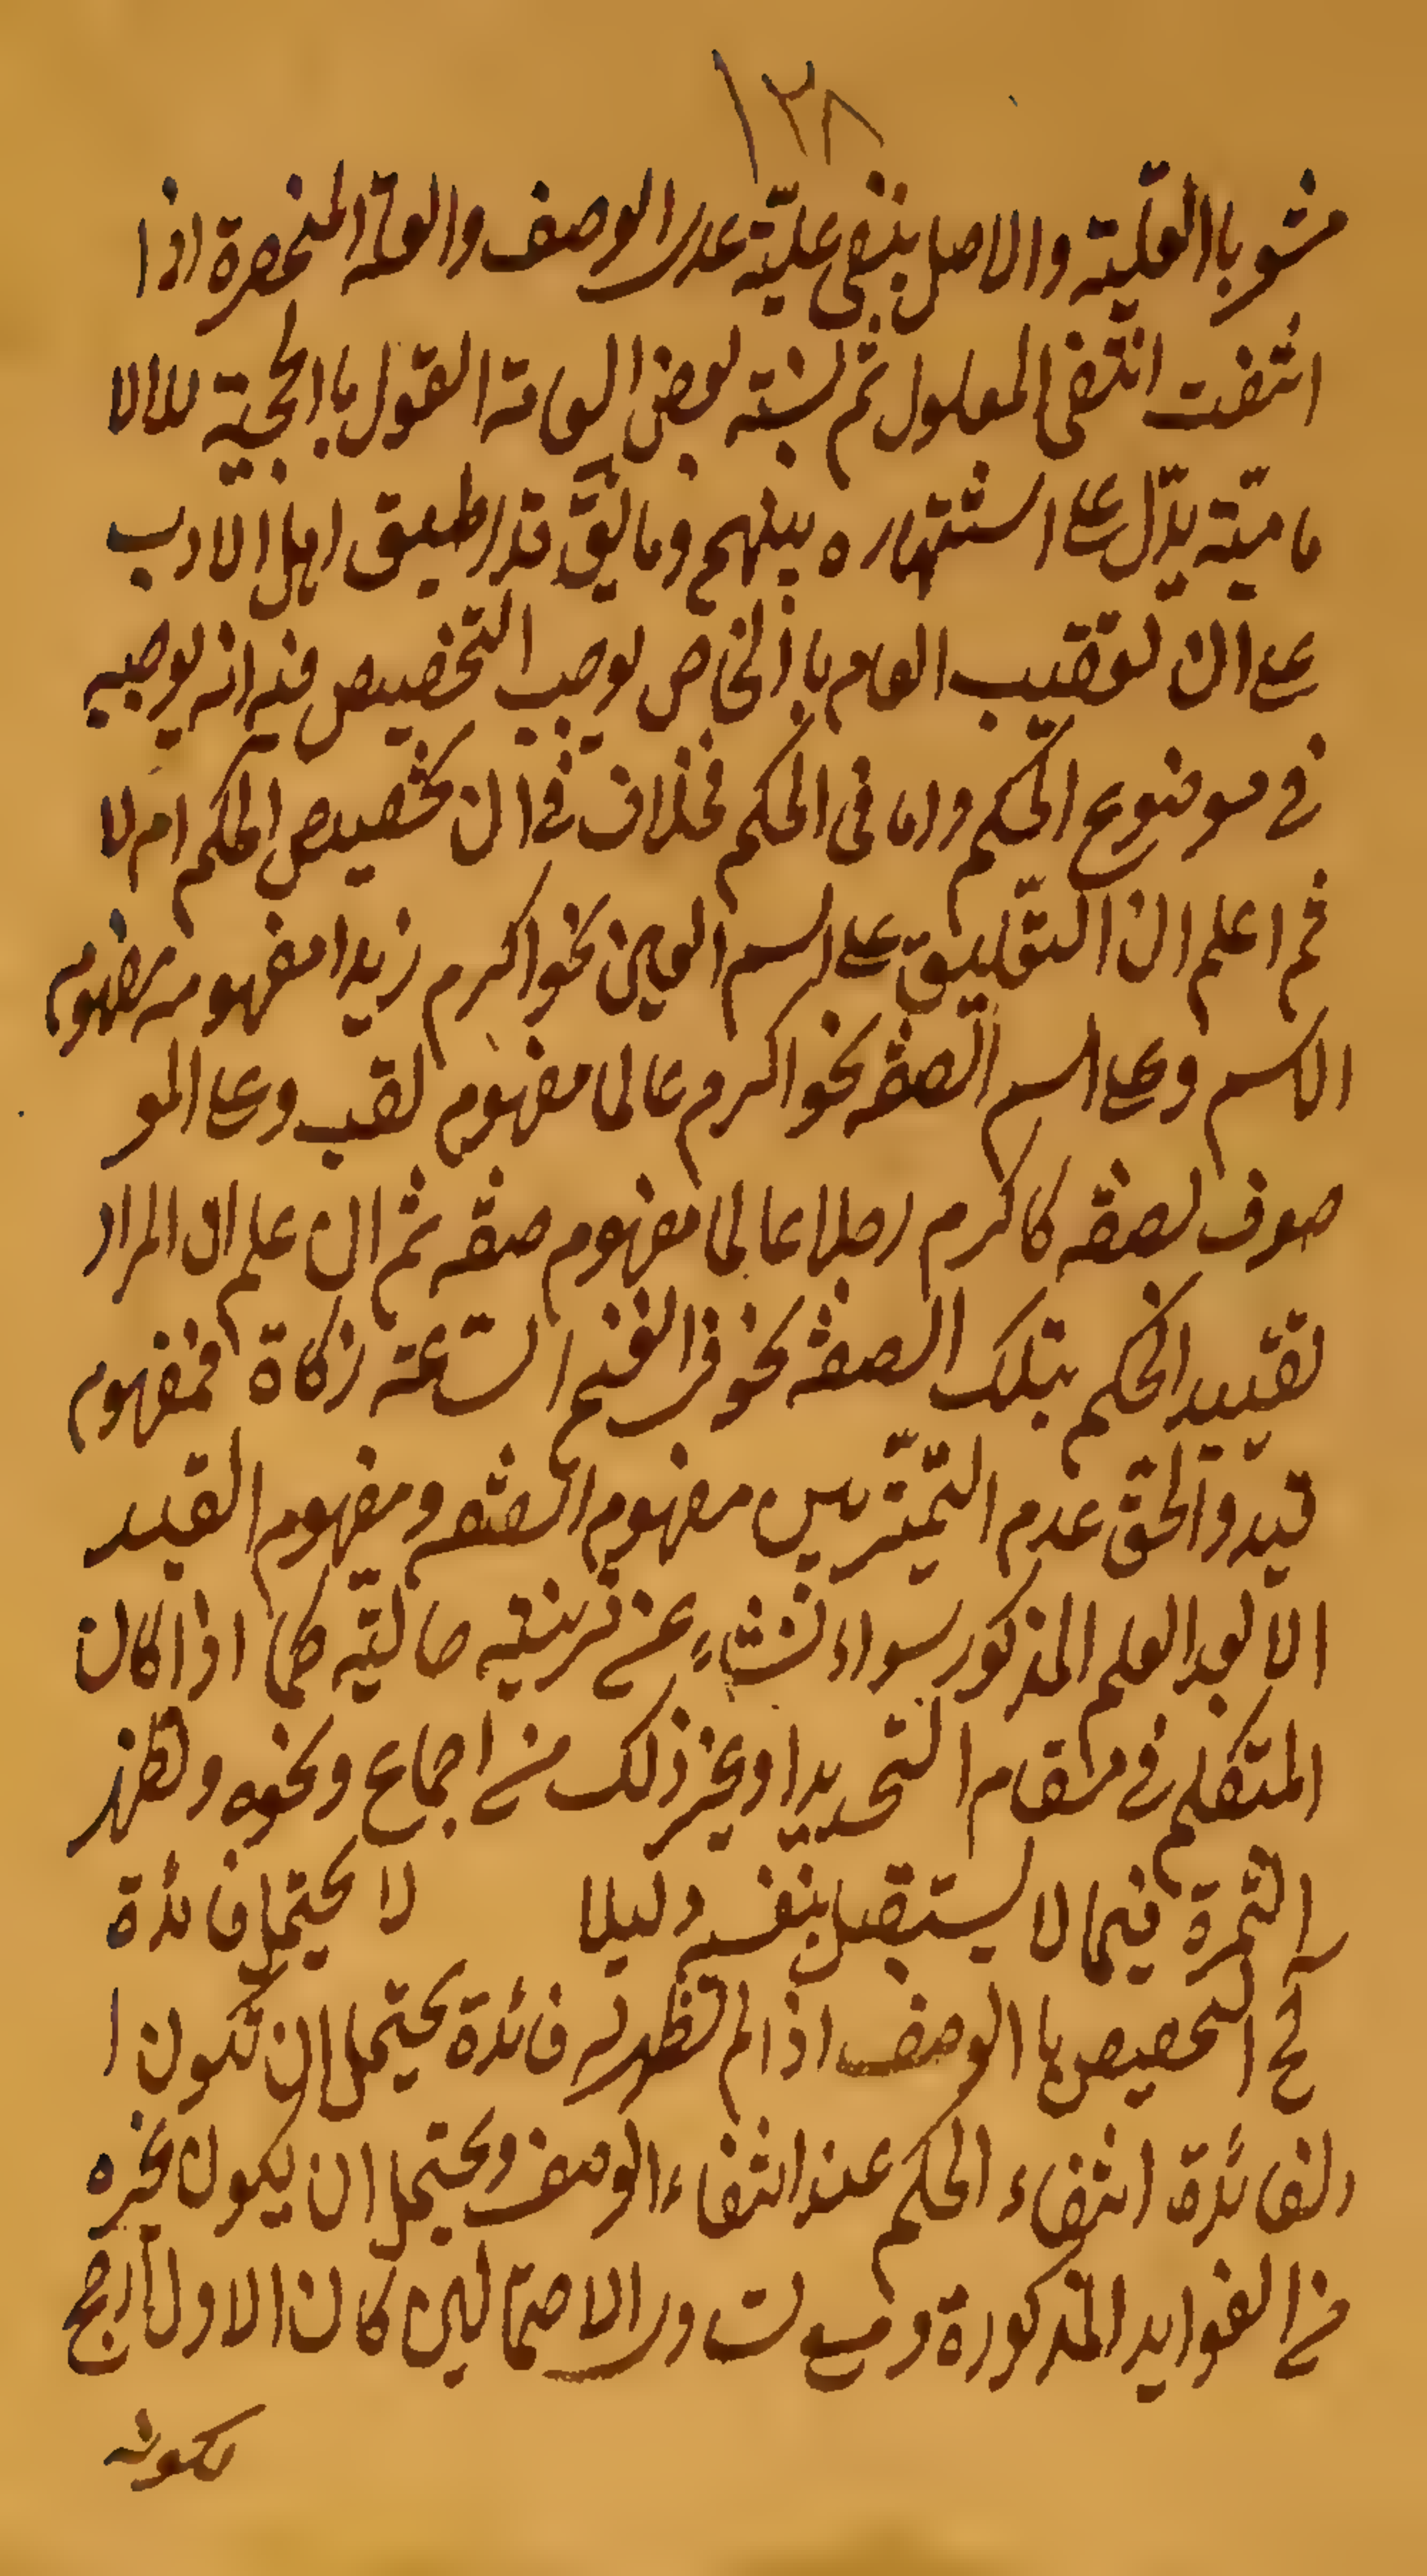 ١٣٨
مشوبا العلية والاصل ينفى علية عدى الوصف والعلة المنحصرة اذا
انتفت انتفى المعلول ثم نسبته بعض العامة القول با الحجية للالا
مامية يدل على اشتهاره بينهم وما يق قد اطبق اهل الادب
على ان تعقيب العام با الخاص يوجب التخصيص فيه انه يوجبه
فى موضوع الحكم واما فى الحكم فخلاف فى ان تخصيص الحكم ام لا
ثم اعلم ان التعليق على اسم العين نحو اكرم زيدا مفهومه مفهوم
الاسم وعلى اسم الصفة نحو اكرم عالما مفهوم لقب وعلى المو
صوف بصفة كاكرم رجلا عالما مفهوم صفة ثم ان علم ان المراد
تقييد الحكم بتلك الصفة نحو فى الغنم السائمة زكاة فمفهوم
قيد والحق عدم التميّز بين مفهوم الصفة ومفهوم القيد
الا بعد العلم المذكور سواء نشاء عن قرينة حالية كما اذا كان
المتكلم فى مقام التحديد او غير ذلك من اجماع ونحوه وتظهر
الثمرة فيما لا يستقل بنفسه دليلا لا يحتمل فائدة
لخ التخصيص با الوصف اذا لم تظهر له فائدة يحتمل ان تكون ا
لفائدة انتفاء الحكم عند انتفاء الوصف ويحتمل ان يكون غيره
من الفوايد المذكورة ومع تساوى الاحتمالين كان الاول ارجح
لكونه